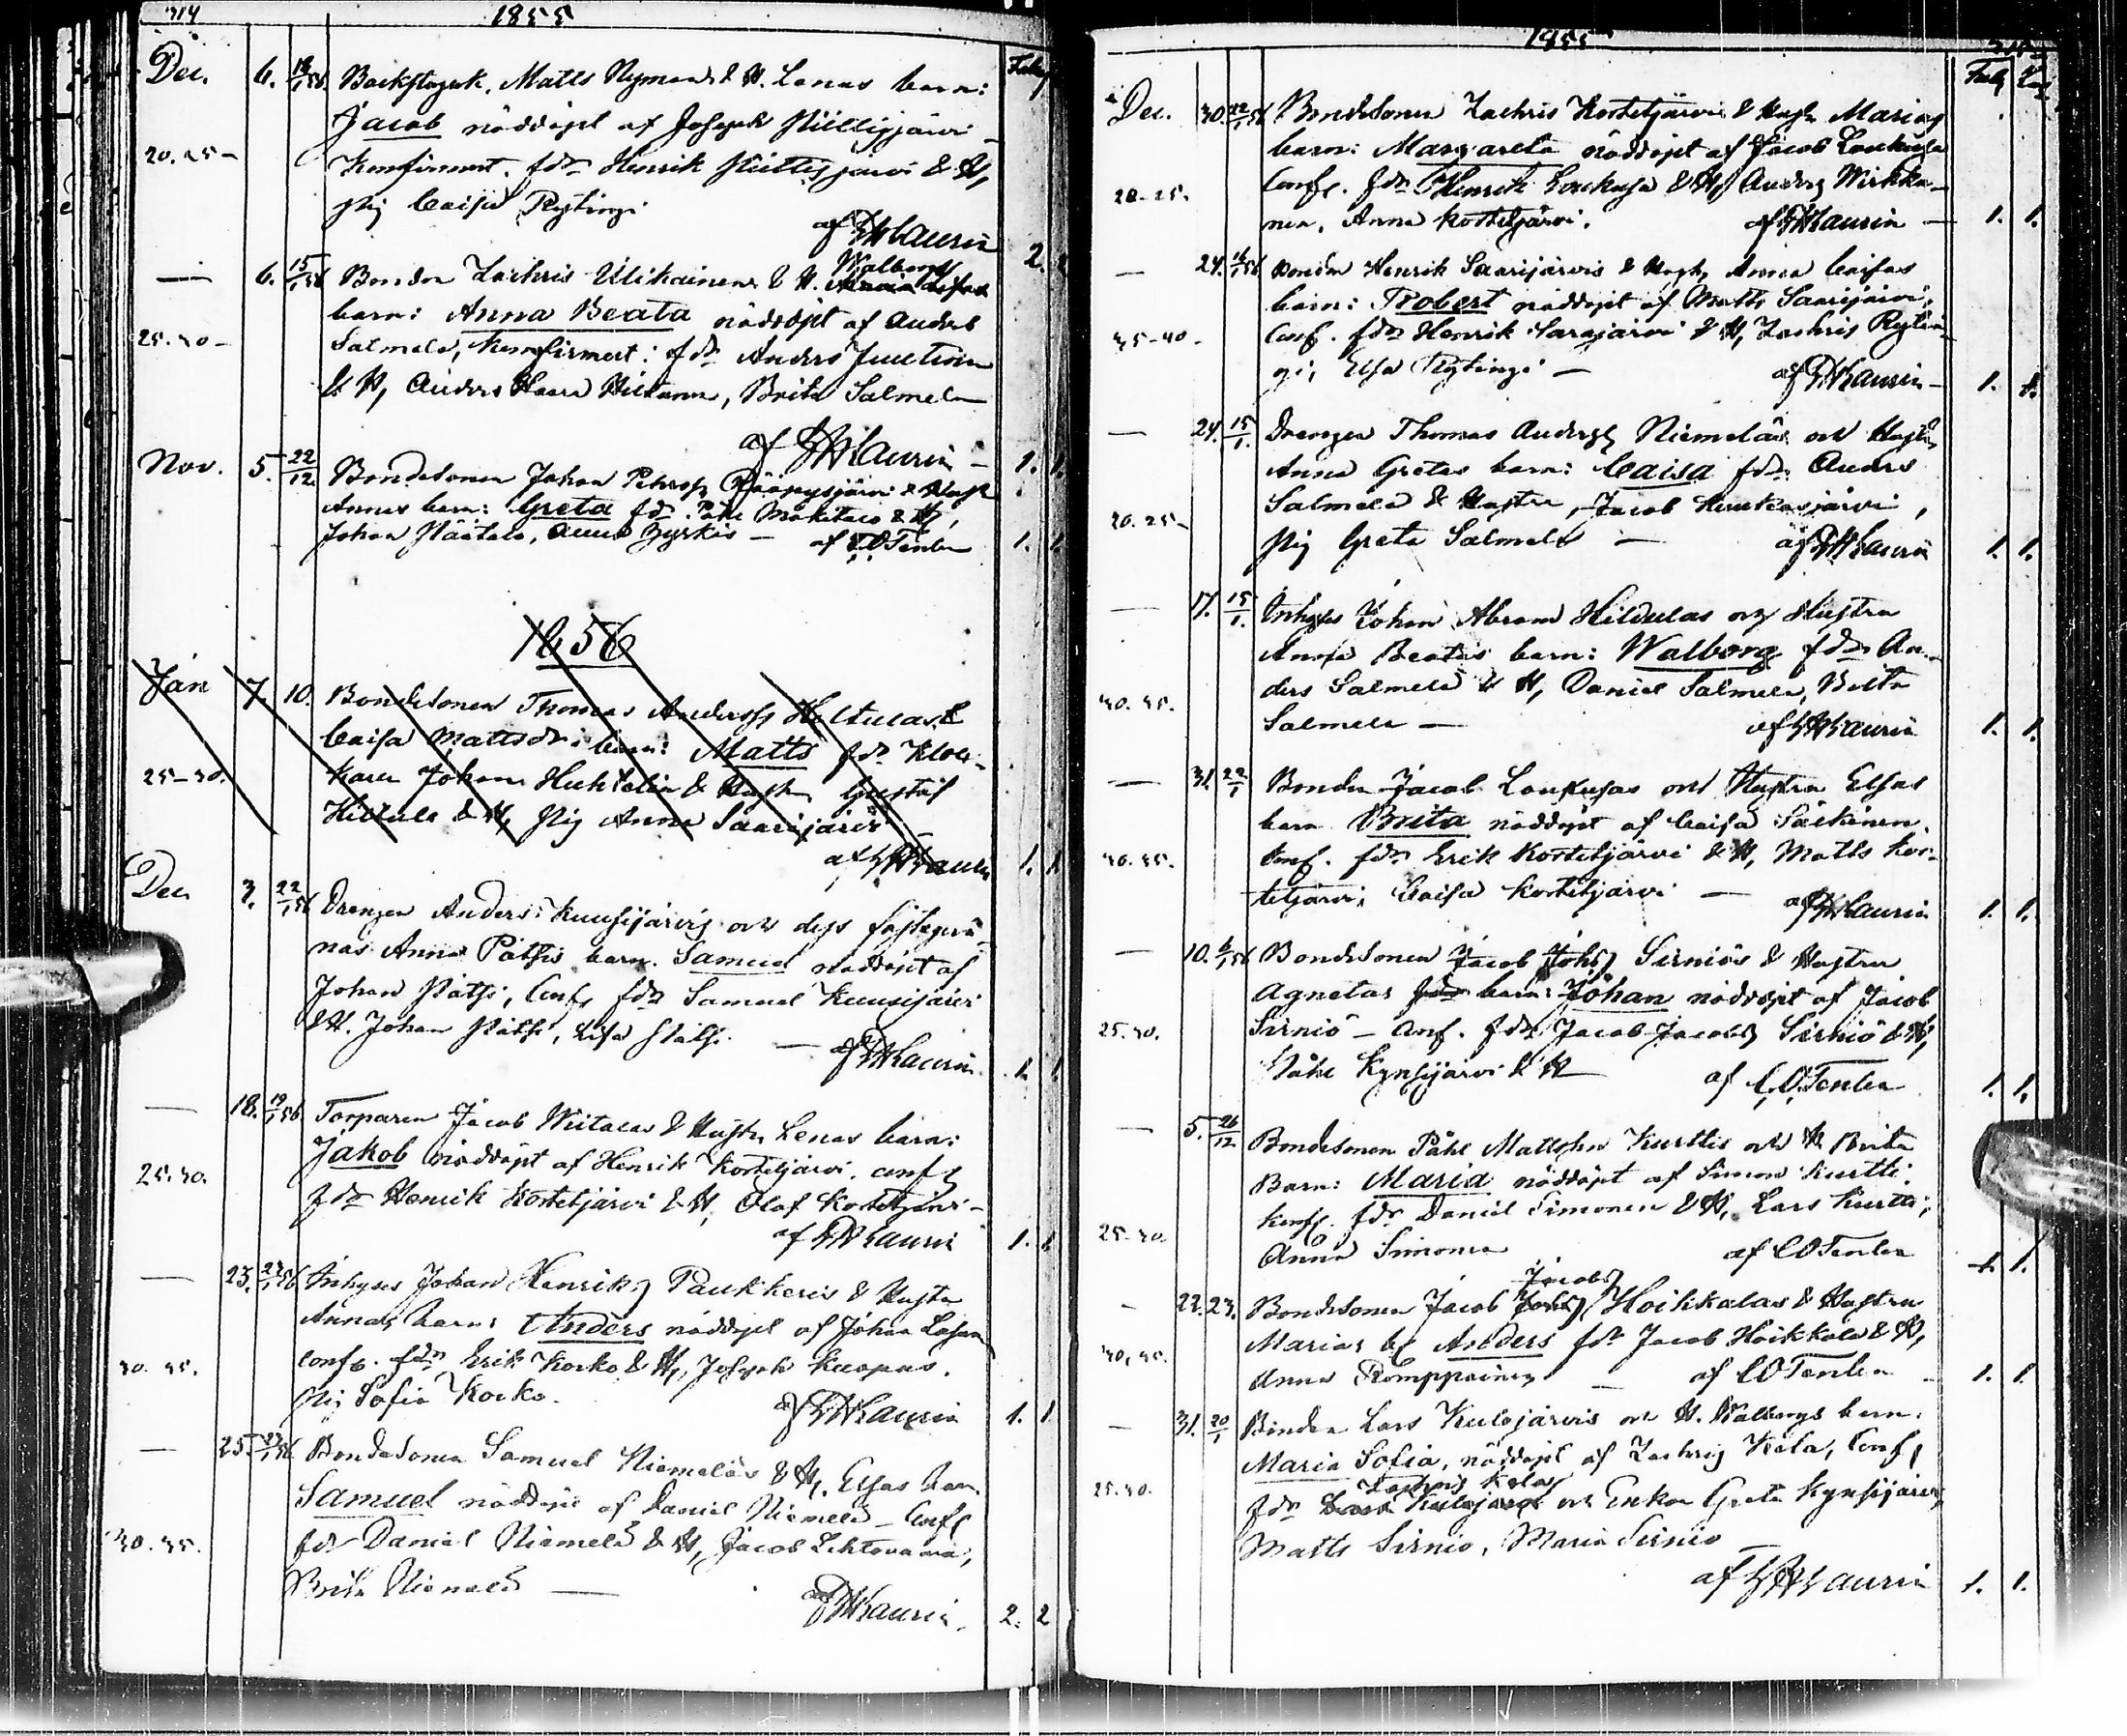 314 1855
Dec. 6. 13/1 56. Matts Nyman & H. Lenas barn:
Jacob nöddöpt af Joseph
20.25 – Konfirmert. fdr Henrik & H,
Pig Caisa Rytingi
af Laurin 2.
— 6. 15/1 56 Bonden Zachris Ulikainens & H. Walborgs
barn: Anna Beata nöddöpt af Anders
25.30 – Salmela, Konfirmert: fdr Anders
& H, Anders, Brita Salmela
af Laurin – 1. 1.
Nov. 5. 22/12. Bondesonen Johan & Hustr
Annas barn: Greta fdr. & H,
Johan Näätälä, – af C.O. Tenlen 1. 1.
1856
Jan 7. 10. Bondesonen Thomas Anderss Hiltulas &
Caisa Mattsdrs barn: Matts fdr Kloc-
25–30. karen Johan & Hustru, Gustaf
Hiltula & H, Pig Anna Saarijärvi –
af Laurin 1. 1.
Dec. 3. 22/1 56 Drengen Anders Kuusijärvis och dess
nas Annas barn. Samuel nöddöpt af
Johan, Conf, fdr Samuel Kuusijärvi
& H. Johan, Lisa
— af Laurin. 1. 1.
— 18. 19/1 56. Torparen Jacob Wiitalas & Hustr Lenas barn:
Jakob nöddöpt af Henrik Kortetjärvi. conf
25.30. fdr Henrik Kortetjärvi & H, Olof Kortetjärvi –
af Laurin 1. 1.
— 23. 27/1 56 Inhyses Johan Henriks Paukkeris & Hustr
Annas barn: Anders nöddöpt af Johan
30.35. conf. fdr Erik Korko & H, Joseph.
Pig Sofia Korko. af Laurin 1. 1.
— 25. 27/1 56 Bondesonen Samuel Niemeläs & H, Elsas barn
Samuel nöddöpt af Daniel Niemelä – Conf
30.35. fdr Daniel Niemelä & H, Jacob Lehtovaara,
Brita Niemelä —
af Laurin. 2. 2
1855
Dec. 30. 12/1 56 Bondesonen Zachris Kortetjärvis & Hustr Marias
barn: Margareta nöddöpt af Jacob Loukusa
20–25. Conf. fdr Henrik Loukusa & H, Anders Wirkku-
nen, Anna Kortetjärvi. af Laurin – 1. 1.
— 24. 56 Bonden Henrik Saarijärvis & Hustr Anna Caisas
barn: Robert nöddöpt af Matts Saarijärvi,
35–40. Conf. fdr Henrik Sarajärvi & H, Zachris Rytin-
gi, Elsa Rytingi – af Laurin – 1. 1.
— 24. 15/1. Drengen Thomas Anderss Niemeläs och Hustr
Anna Gretas barn: Caisa fdr: Anders
20.25– Salmela & Hustru, Jacob,
Pig Greta Salmela — af Laurin 1. 1.
— 17. 15/1. Inhyses Johan Abram Hiltulas och Hustru
Anna Beatas barn: Walborg fdr An-
40.45. ders Salmela & H, Daniel Salmela, Brita
Salmela — af Laurin 1. 1.
— 31. 22/1 Bonden Jacob Loukusas och Hustru Elsas
barn Brita nöddöpt af Caisa Säkkinen.
40.45. Conf. fdr Erik Kortetjärvi & H, Matts Kor-
tetjärvi, Caisa Kortetjärvi — af Laurin 1. 1.
— 10. 6/1 56 Bondesonen Jacob Johs Sirniös & Hustru
Agnetas fdr barn: Johan nöddöpt af Jacob
25.30. Sirniö – Conf. fdr Jacob Jacobs Sirniö & H,
Påhl Kynsijärvi & H af C.O. Tenlen 1. 1.
— 5. 26/12 Bondesonen Påhl Mattsson Kurttis och H Brita
Barn: Maria nöddöpt af Simon Kurtti.
25–30. Konf. fdr Daniel Simonen & H, Lars Kurtti,
Anna Simonen af CO Tenlen 1. 1.
– 22. 23. Bondesonen Jacob Johs Jacobs Hoikkalas & Hustru
40.45. Marias bn Anders fdr Jacob Hoikkala & H,
Anna Romppainen – af CO Tenlen 1. 1.
— 31. 20/1 Bonden Lars Kulojärvis och H. Walborgs barn.
Maria Sofia, nöddöpt af Zachris Kela, Conf,
25.30. fdr Lars Kulojärvi Zachris Kela och Enkan Greta Kynsijärvi,
Matts Sirniö, Maria Sirniö
af Laurin 1. 1.